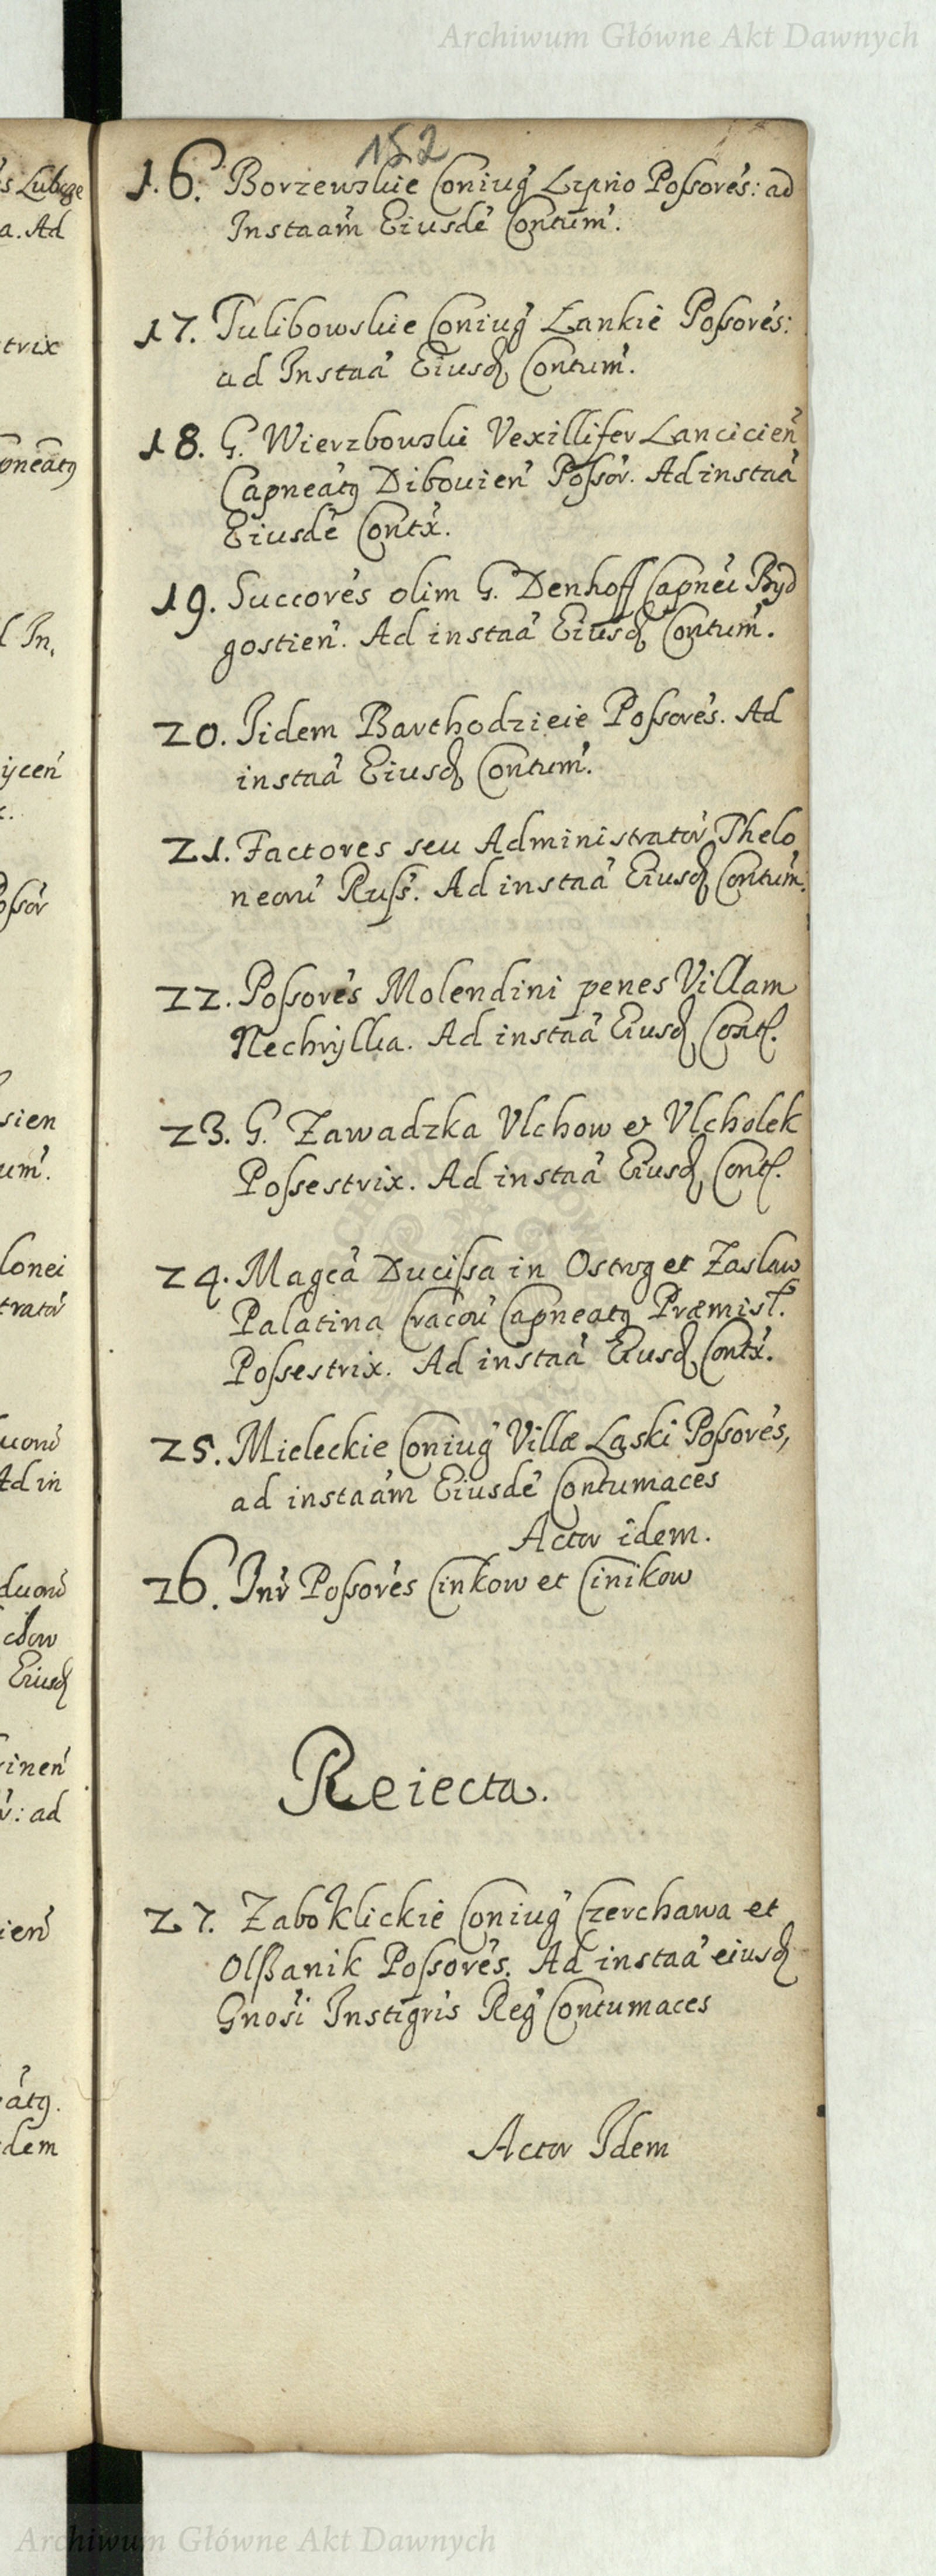 Archiwum Główne Akt Dawnych
152
16. Borzewskie Coniug Lipno Possores: ad
Instaam Eiusde Contum.
17. Tulibowskie Coniug Lankie Possores:
ad Instaa Eiusd Contum.
18. G. Wierzbowski Vexillifer Lancicien
Capneatq Dibouien Possor. Ad instaa
Eiusde Contx.
19. Succores olim G. Denhoff Capnei Byd
gostien. Ad instaa Eiusd Contum.
20. Iidem Barthodzieie Possores. Ad
instaa Eiusd Contum.
21. Factores seu Administrator Thelo
neoru Russ. Ad instaa Eiusd Contum.
22. Possores Molendini penes Villam
Nechrylka. Ad instaa Eiusd Cont.
23. G. Zawadzka Vlchow et Vlcholek
Possestrix. Ad instaa Eiusd Cont.
24. Magca Ducissa in Ostrog et Zaslaw
Palatina Cracou Capneatq Præmisl.
Possestrix. Ad instaa Eiusd Contx.
25. Mieleckie Coniug Villæ Laski Possores,
ad instaam Eiusde Contumaces
Actor idem.
26. Inr Possores Cinkow et Cinikow
Reiecta.
27. Zaboklickie Coniug Czerchawa et
Olszanik Possores. Ad instaa eiusd
Gnosi Instigris Reg Contumaces
Actor Idem
Archiwum Główne Akt Dawnych